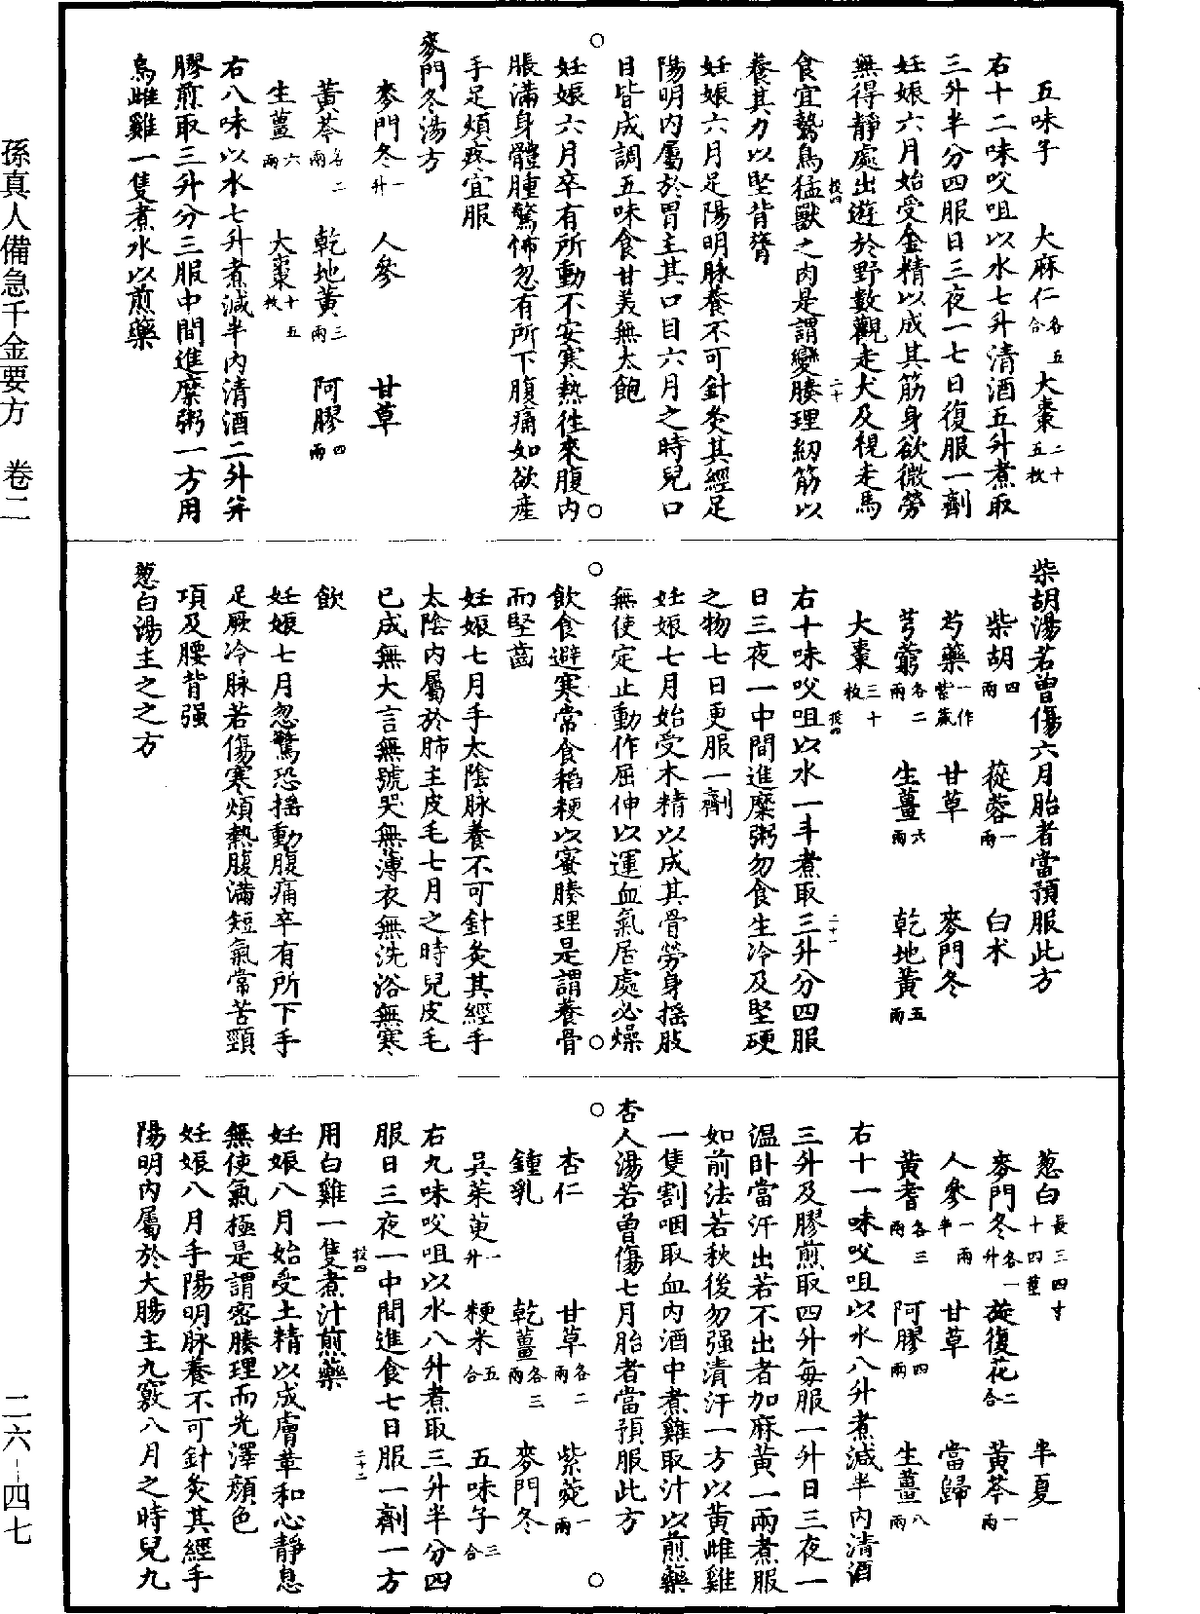 五味子　大麻仁各五合　大棗二十五枚
右十二味㕮咀以水七升清酒五升煮取
三升半分四服日三夜一七日復服一劑
妊娠六月始受金精以成其筋身欲微勞
無得靜處出遊於野數觀走犬及視走馬
食宜鷙鳥猛獸之肉是謂變腠理紉筋以
養其力以堅背膂
妊娠六月足陽明脉養不可針灸其經足
陽明內屬於胃主其口目六月之時兒口
目皆成調五味食甘美無太飽
妊娠六月卒有所動不安寒熱往來腹內
脹滿身體腫驚怖忽有所下腹痛如欲產
手足煩疼宜服
麥門冬湯方
麥門冬一升　人參　甘草
黃芩各二兩　乾地黃三兩　阿膠四兩
生薑六兩　大棗十五枚
右八味以水七升煮減半內清酒二升并
膠煎取三升分三服中間進糜粥一方用
烏雌雞一隻煮水以煎藥
柴胡湯若曾傷六月胎者當預服此方
柴胡四兩　蓯蓉一兩　白朮
芍藥一作紫葳　甘草　麥門冬
芎藭各二兩　生薑六兩　乾地黃五兩
大棗三十枚
右十味㕮咀以水一斗煮取三升分四服
日三夜一中間進糜粥勿食生冷及堅硬
之物七日更服一劑
妊娠七月始受木精以成其骨勞身搖肢
無使定止動作屈伸以運血氣居處必燥
飲食避寒常食稻粳以密腠理是謂養骨
而堅齒
妊娠七月手太陰脉養不可針灸其經手
太陰內屬於肺主皮毛七月之時兒皮毛
已成無大言無號哭無薄衣無洗浴無寒
飲
妊娠七月忽驚恐搖動腹痛卒有所下手
足厥冷脉若傷寒煩熱腹滿短氣常苦頸
項及腰背强
葱白湯主之之方
葱白長三四寸十四莖　半夏
麥門冬各一升　旋復花二合　黃芩一兩
人參一兩半　甘草　當歸
黃耆各三兩　阿膠四兩　生薑八兩
右十一味㕮咀以水八升煮減半內清酒
三升及膠煎取四升每服一升日三夜一
溫卧當汗出若不出者加麻黃一兩煮服
如前法若秋後勿强漬汗一方以黃雌雞
一隻割咽取血內酒中煮雞取汁以煎藥
杏人湯若曾傷七月胎者當預服此方
杏仁　甘草各二兩　紫菀一兩
鍾乳　乾薑各三兩　麥門冬
吳茱萸一升　粳米五合　五味子三合
右九味㕮咀以水八升煮取三升半分四
服日三夜一中間進食七日服一劑一方
用白雞一隻煮汁煎藥
妊娠八月始受土精以成膚革和心靜息
無使氣極是謂密腠理而光澤顏色
妊娠八月手陽明脉養不可針灸其經手
陽明內屬於大腸主九竅八月之時兒九
孫真人備急千金要方　卷二
二六－四七